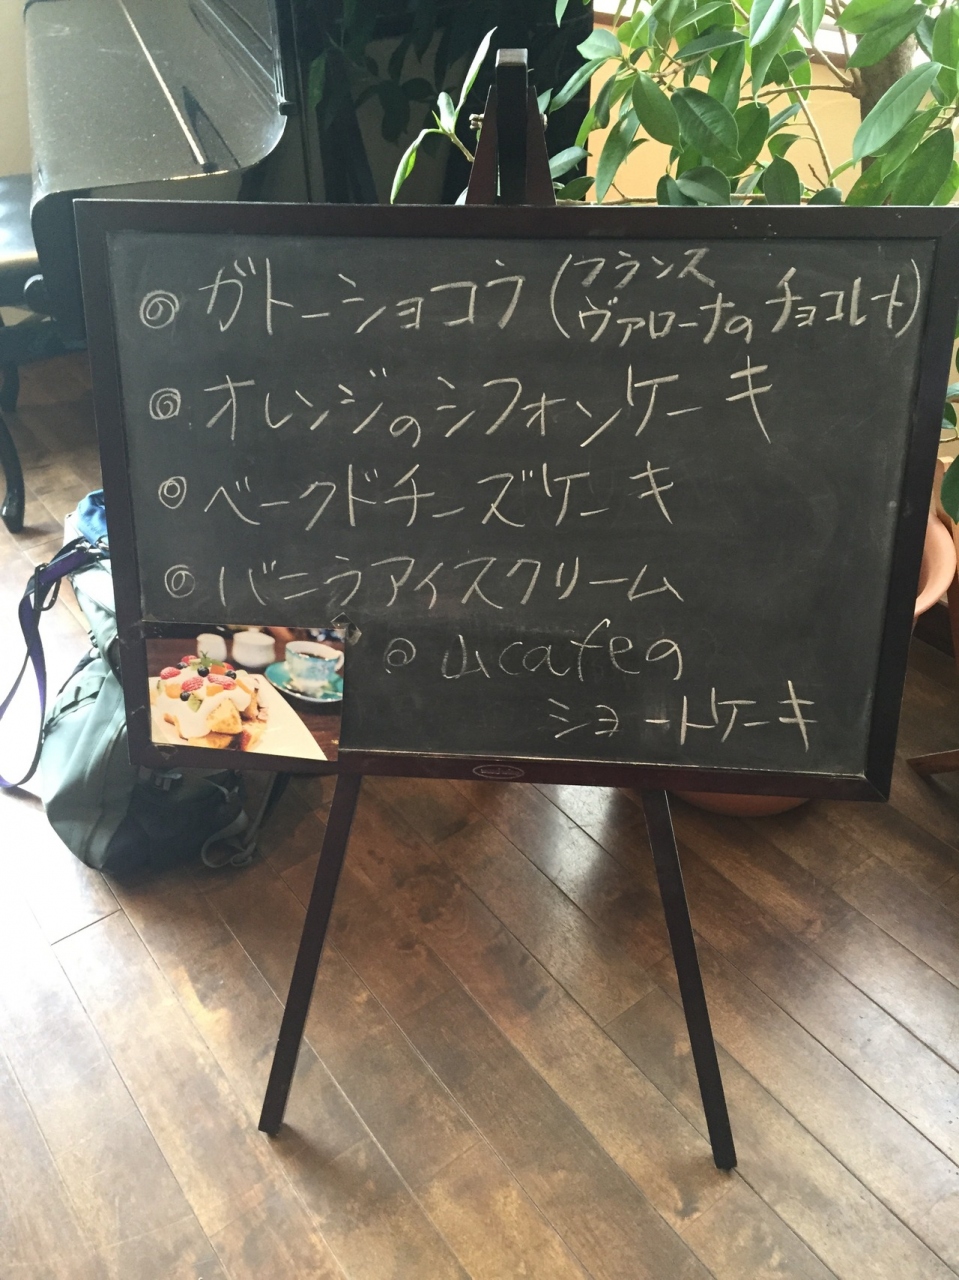 ◎ ガトーショコラ (フランス ヴァローナの チョコレート)
◎ オレンジのシフォンケーキ
◎ ベークドチーズケーキ
◎ バニラアイスクリーム
◎ 山cafeの
ショートケーキ